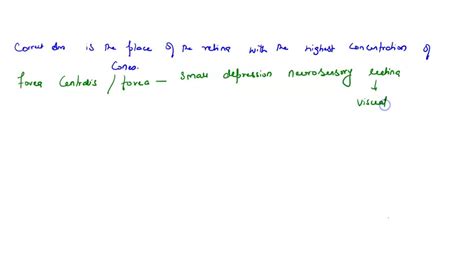 Correct stm is the place of the retina with the highest concentration of
Cones.
fovea Centralis / fovea — small depression neurosensory retina
↓
visual